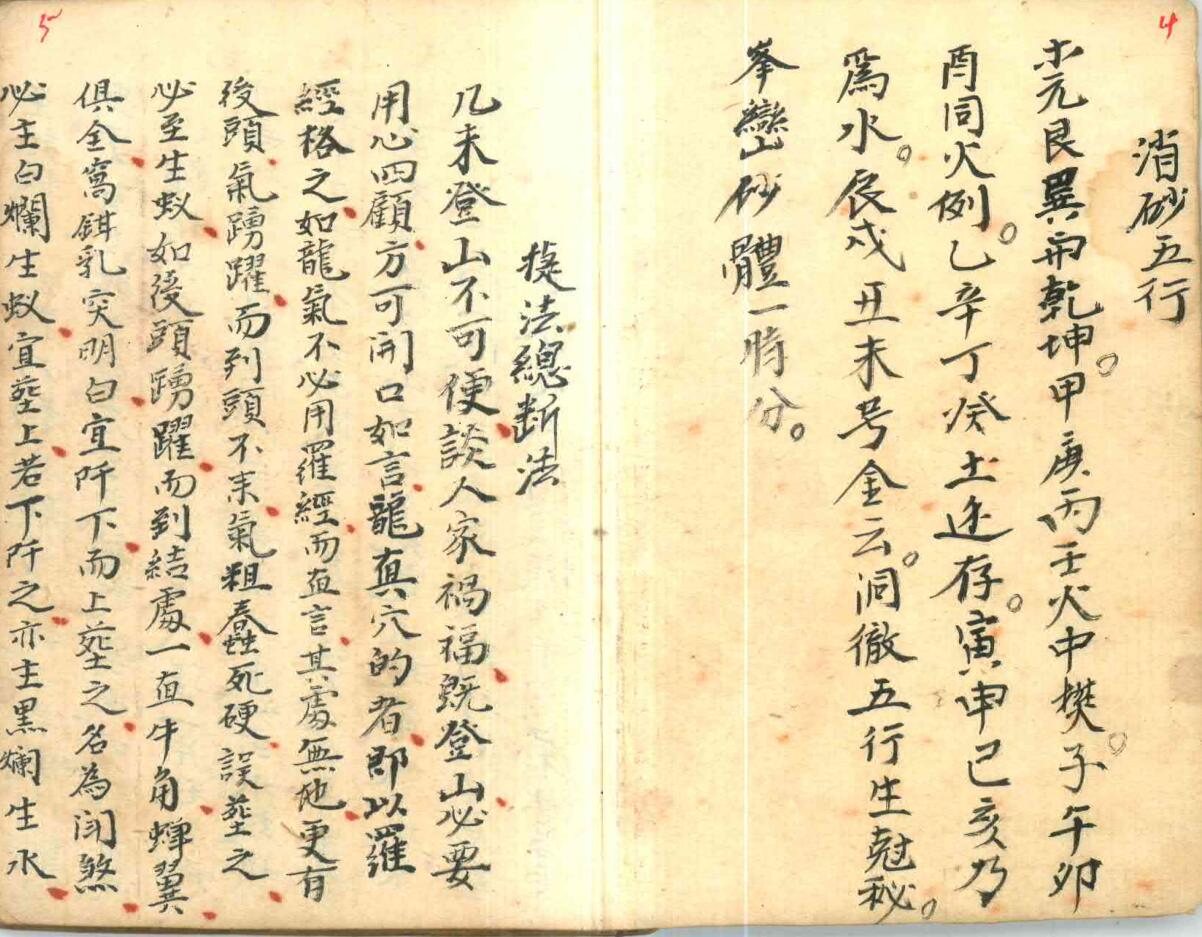 4
消砂五行
木元艮巽和乾坤。甲庚丙壬火中樊。子午卯
酉同火例。乙辛丁癸土逆存。寅申巳亥乃
為水。辰戌丑未号金云。洞徹五行生尅秘。
峯巒砂體一時分。
5
總斷法
凡未登山不可便談人家禍福既登山必要
用心四顧方可開口如言龍真穴的者即以羅
經格之如龍氣不必用羅經而直言其處無地更有
後頭氣踴躍而到頭不来氣粗蠢死硬誤塟之
必至生蚁如後頭踴躍而到結處一直牛角蟬翼
俱全窩鉗乳突明白宜阡下而上塟之名為閉煞
必主白爛生蚁宜塟上若下阡之亦主黒爛生水